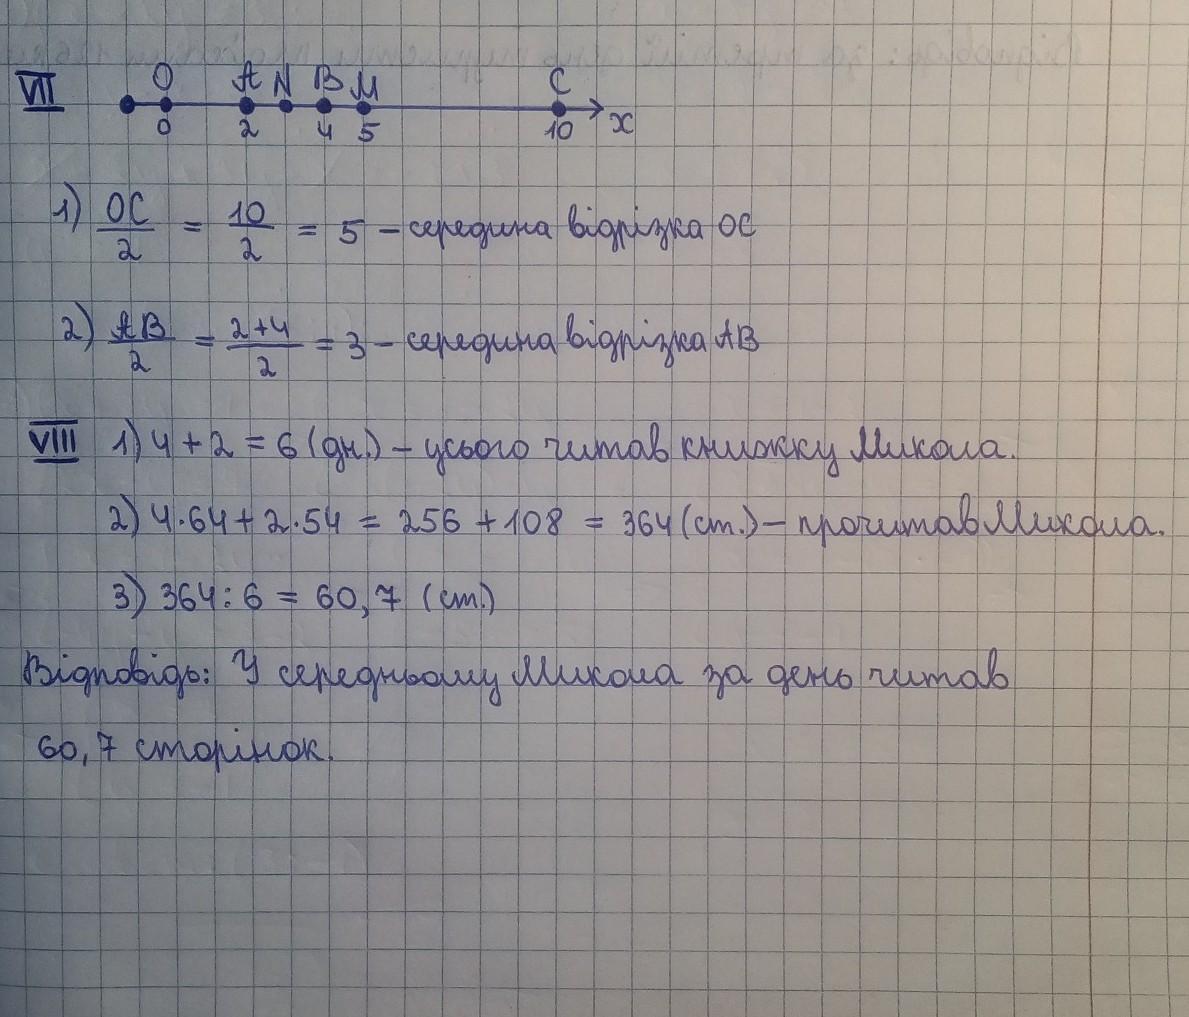 VII O A N B M C
0 2 4 5 10 x
1) OC/2 = 10/2 = 5 – середина відрізка OC
2) AB/2 = 2+4/2 = 3 – середина відрізка AB
VIII 1) 4 + 2 = 6 (дн.) – усього читав книжку Микола.
2) 4·64 + 2·54 = 256 + 108 = 364 (ст.) – прочитав Микола.
3) 364 : 6 = 60,7 (ст.)
Відповідь: У середньому Микола за день читав
60,7 сторінок.